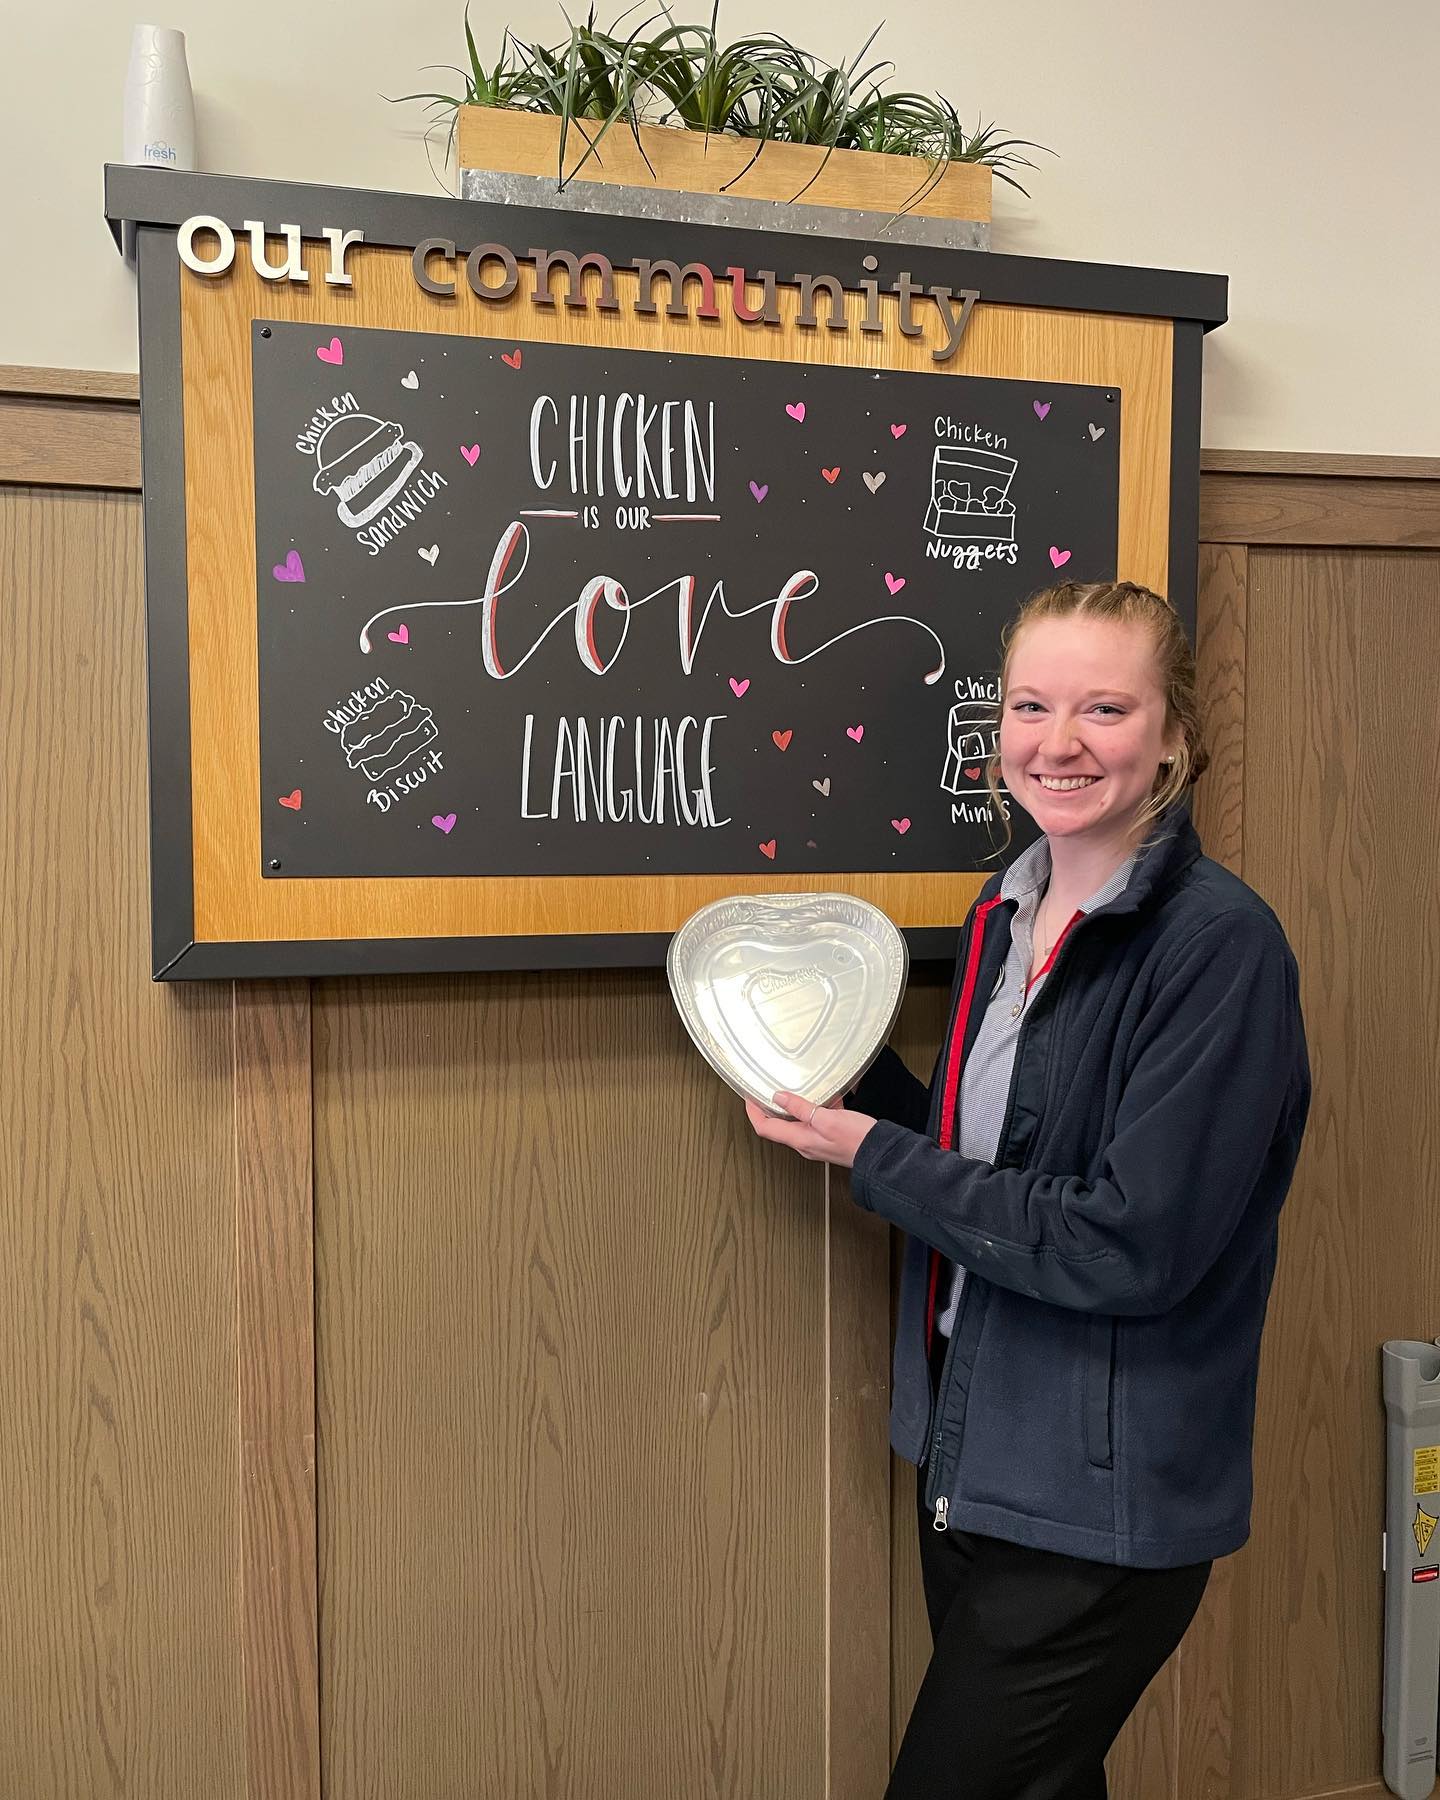 fresh
our community
Chicken
Sandwich
CHICKEN
IS OUR
love
LANGUAGE
Chicken
Nuggets
Chicken
Biscuit
Minis